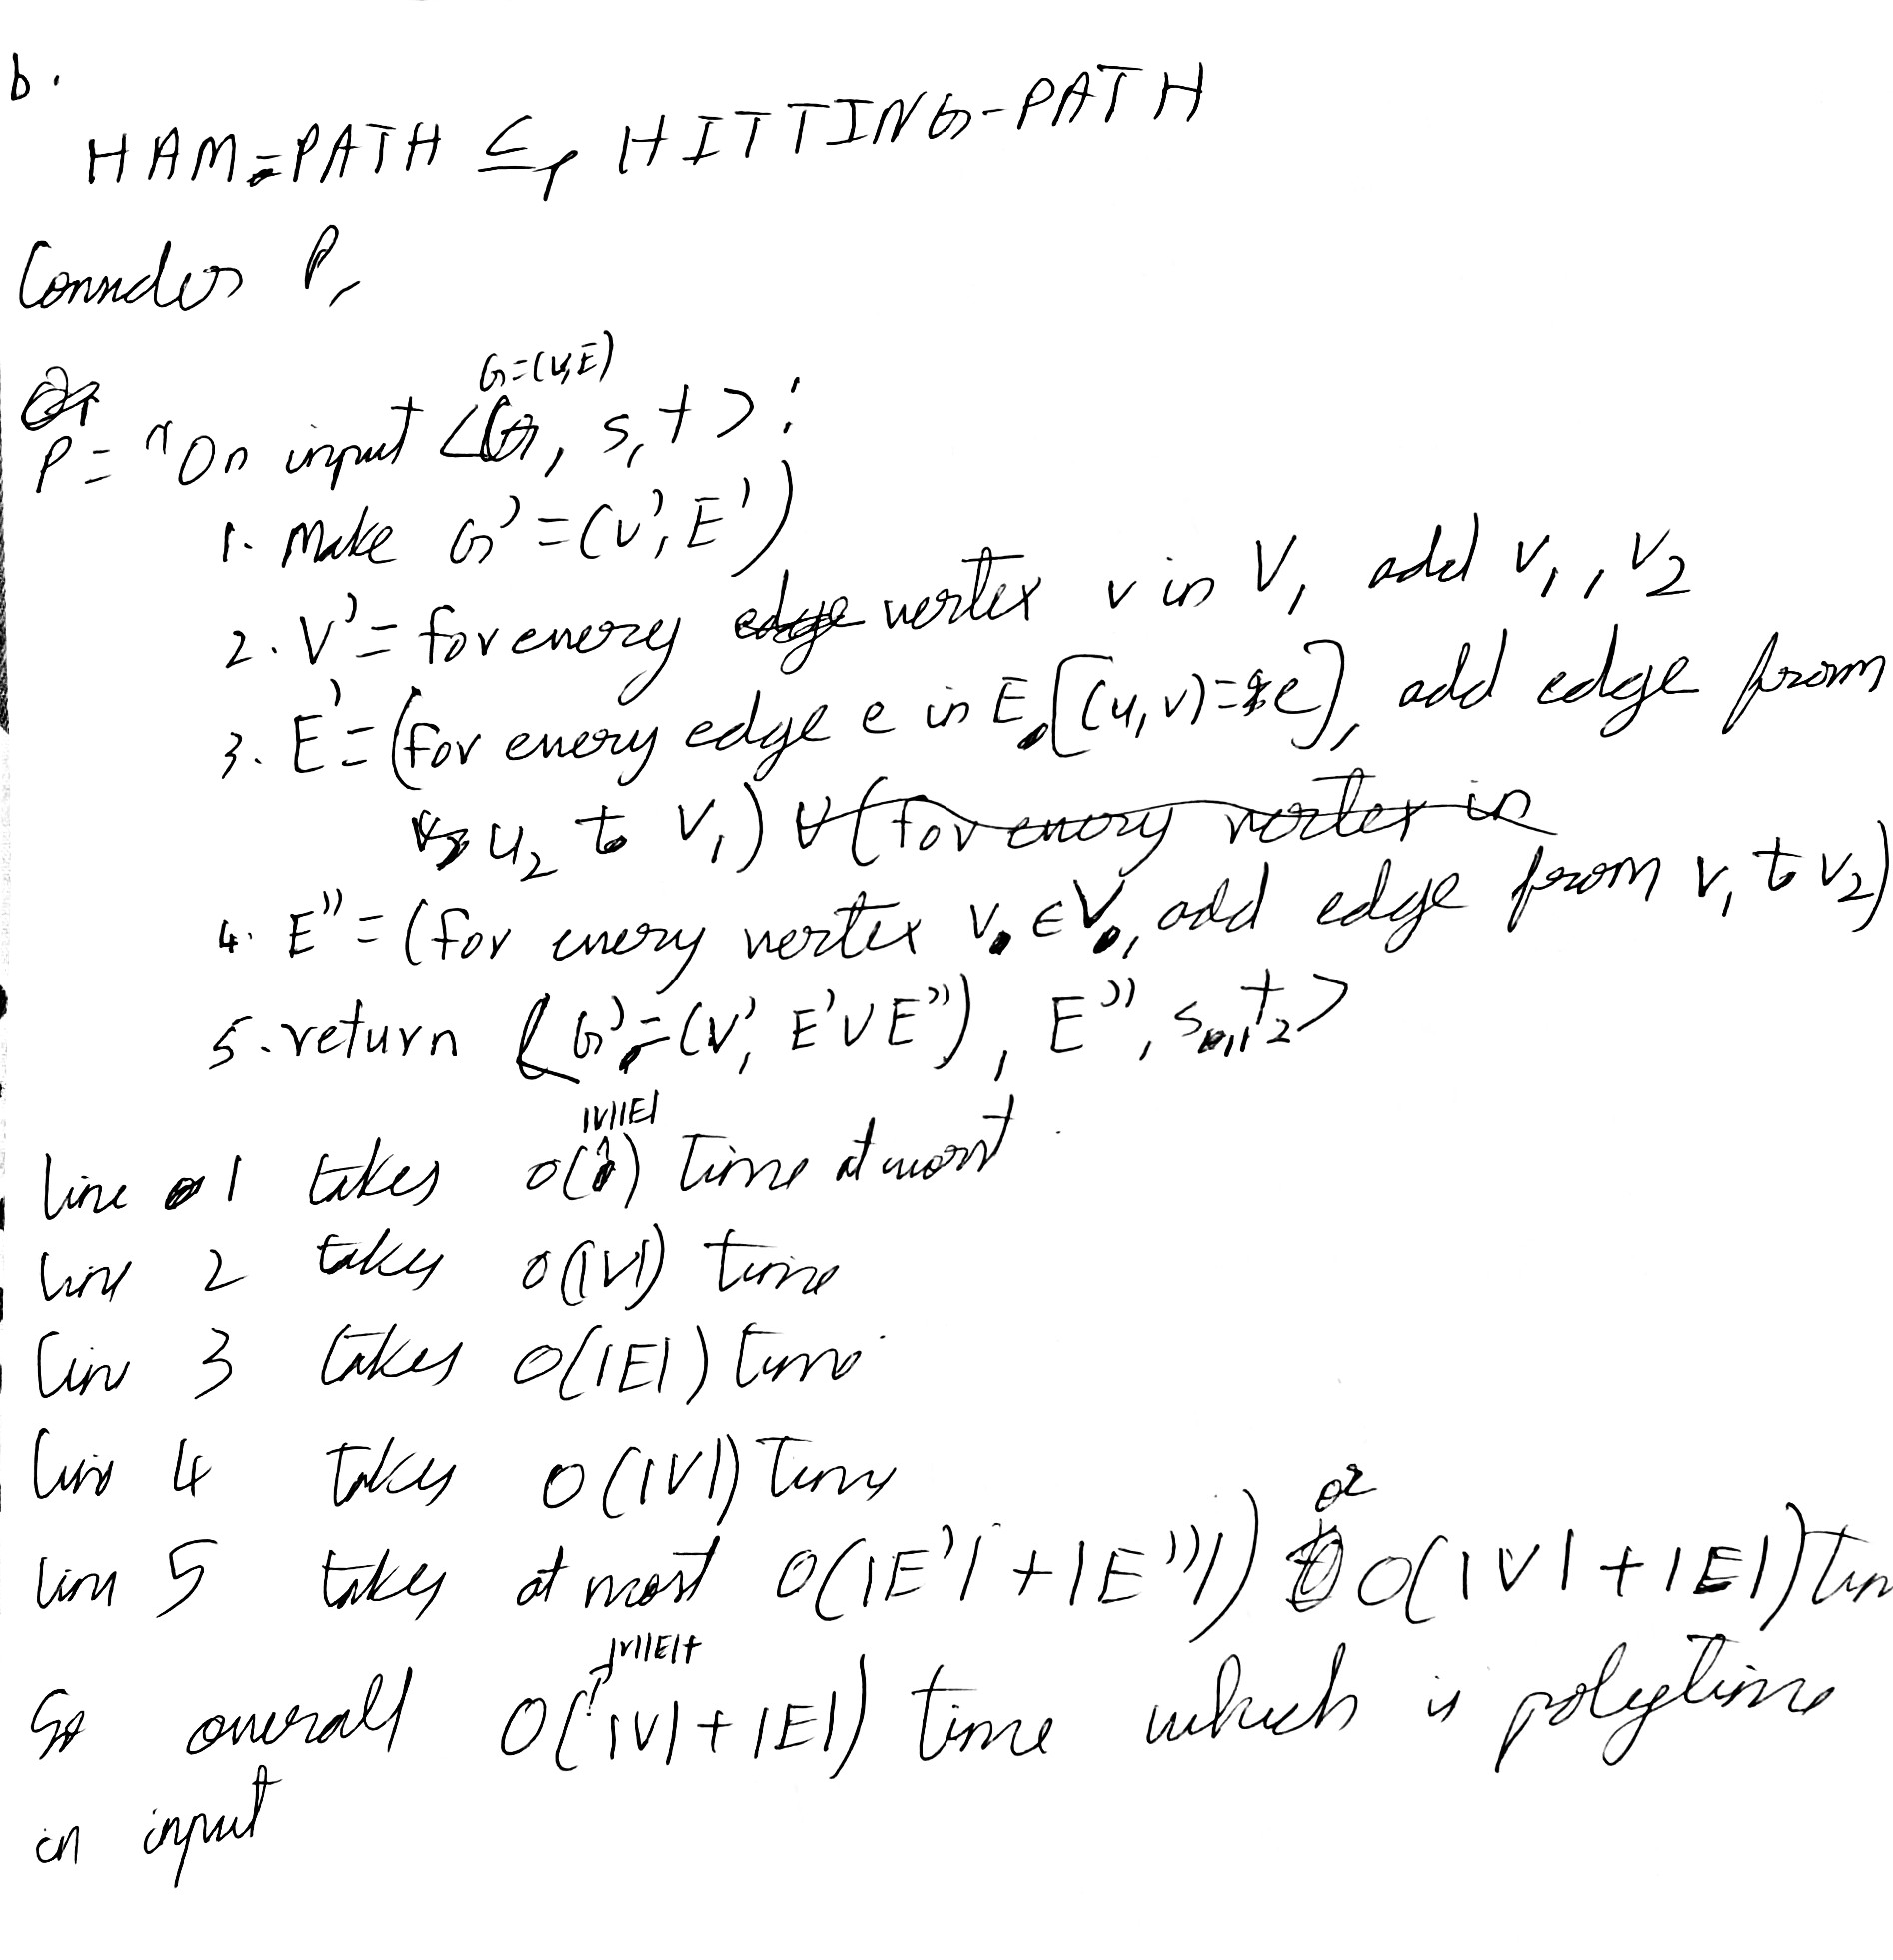 b.
HAM-PATH ≤p HITTING-PATH
Consider P,
G=(V,E)
P = "On input <G, s, t>:
1. Make G' = (V', E')
2. V' = for every vertex v in V, add v₁, v₂
3. E' = (for every edge e in E [(u,v)=e], add edge from
u₂ to v₁) ∪ (for every vertex in
4. E'' = (for every vertex v ∈ V, add edge from v₁ to v₂)
5. return <G' = (V', E'∪E''), E'', s₁, t₂>
|V||E|
line 1 takes O( ) time at most.
line 2 takes O(|V|) time
line 3 takes O(|E|) time
line 4 takes O(|V|) time
line 5 takes at most O(|E'| + |E''|) or O(|V| + |E|) tim
|V||E|+
So overall O(|V| + |E|) time which is polytime
in input